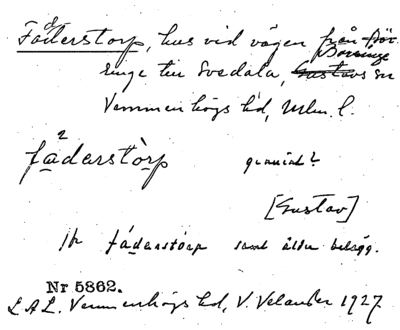 Fåderstorp, hus vid vägen från
Börringe till Svedala, Gustavs sn
Vemmenhögs hd, Mlm. l.
fàdarstòrp genuint?
[Gustav]
Jfr fádarstòrp samt äldre belägg.
Nr 5862.
L.A.L. Vemmenhögs hd, V. Velander 1927.